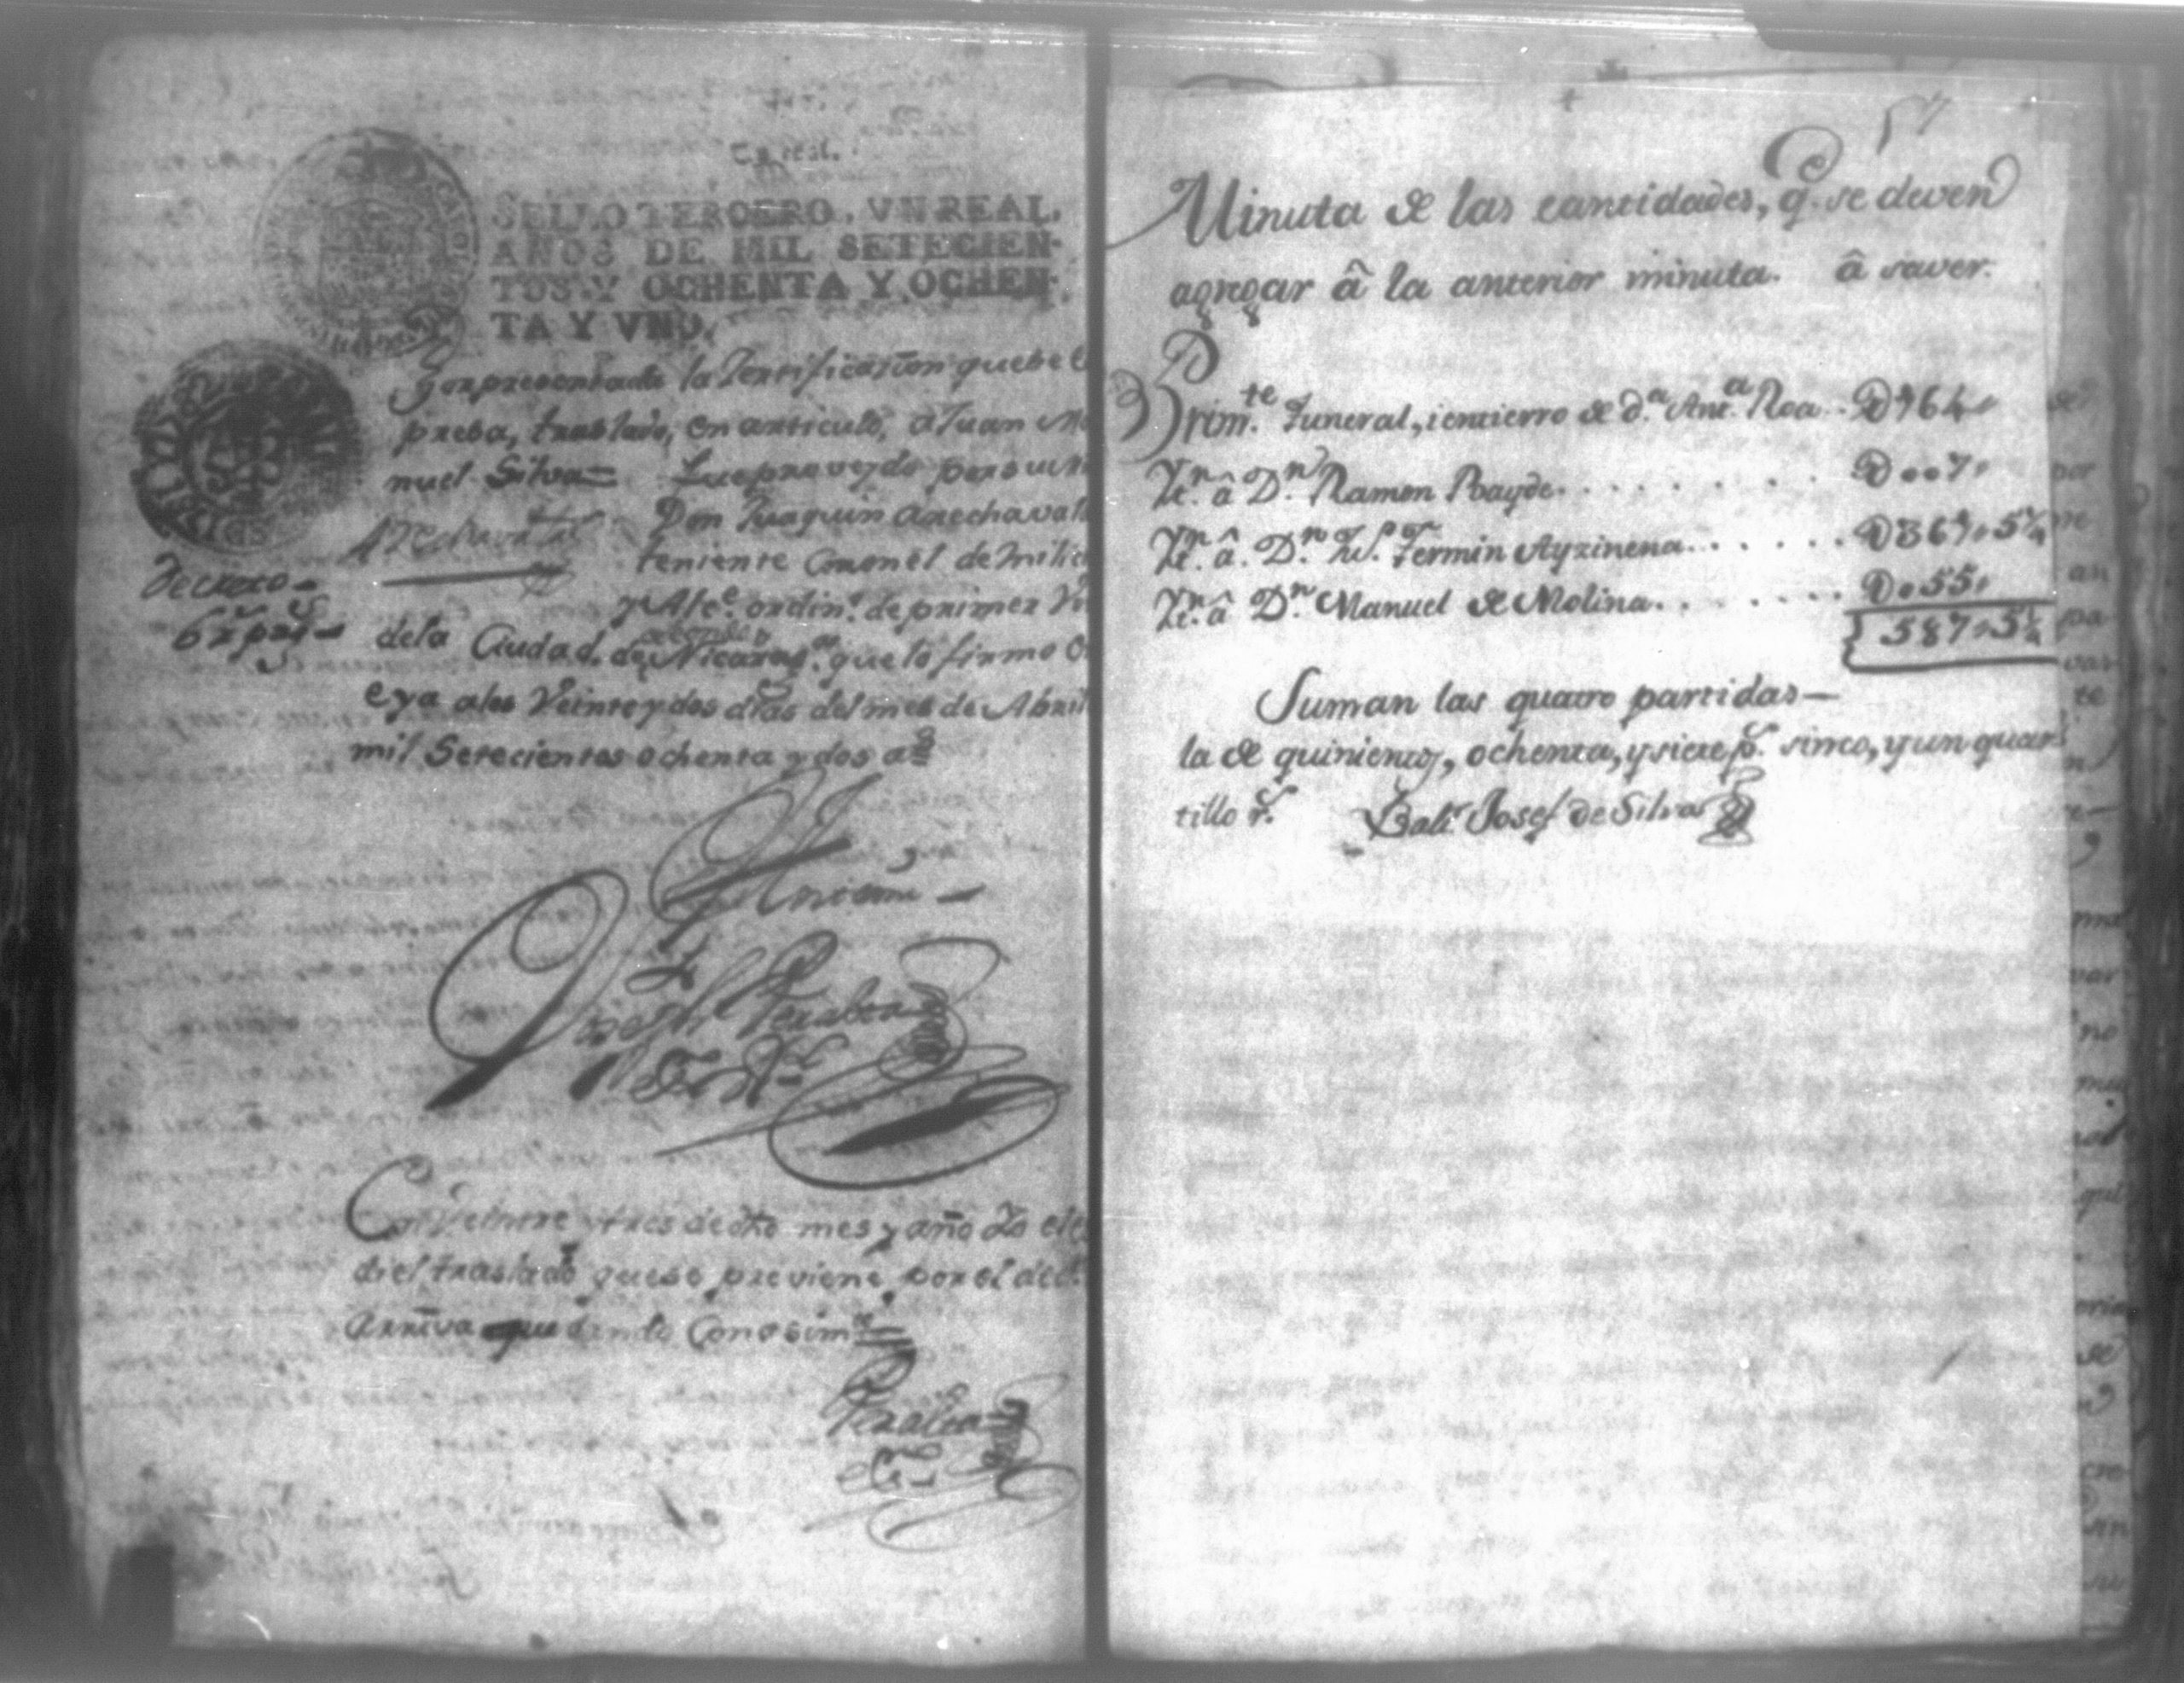 SELLO TERCERO, VN REAL,
AÑOS DE MIL SETECIEN-
TOS Y OCHENTA Y OCHEN-
TA Y VNO.
Y por presentada la Zertificazion que se e
presa, traslado, en articulo, a Juan Ma
nuel Silva= Lo proveydo por su m
Don Juaquin Arechavala
teniente Coronel de Milic
y Alce. ordino. de primer Vo
Arechavala
decreto-
6 rs pg-
dela Ciudad. de Nicarag.a que lo firmo en
eya alos Veinte y dos dias del mes de Abril
mil Setecientos ochenta y dos as
Ante mi-
Joseph Peralta
En Veinte y tres de dho mes y año Yo el
di el traslado que se previene por el dec.
arriva quedando Conosim.to=
Peralta
57
Minuta de las cantidades, q.e se deven
agregar â la anterior minuta. â saver.
Prim.te Funeral, i entierro de d.a Ant.a Roa.. 164
Yt.n â D.n Ramon Bayde. . . . . . . . ..7
Yt.n â. D.n Ju.o Fermin Ayzinena. . . . . . . 361, 5¼
Yt.n â D.n Manuel de Molina. . . . . . . .55
587, 5¼
Suman las quatro partidas-
la de quinientos, ochenta, y siete p.s sinco, y un quar
tillo r.s Balt.r Josef de Silva